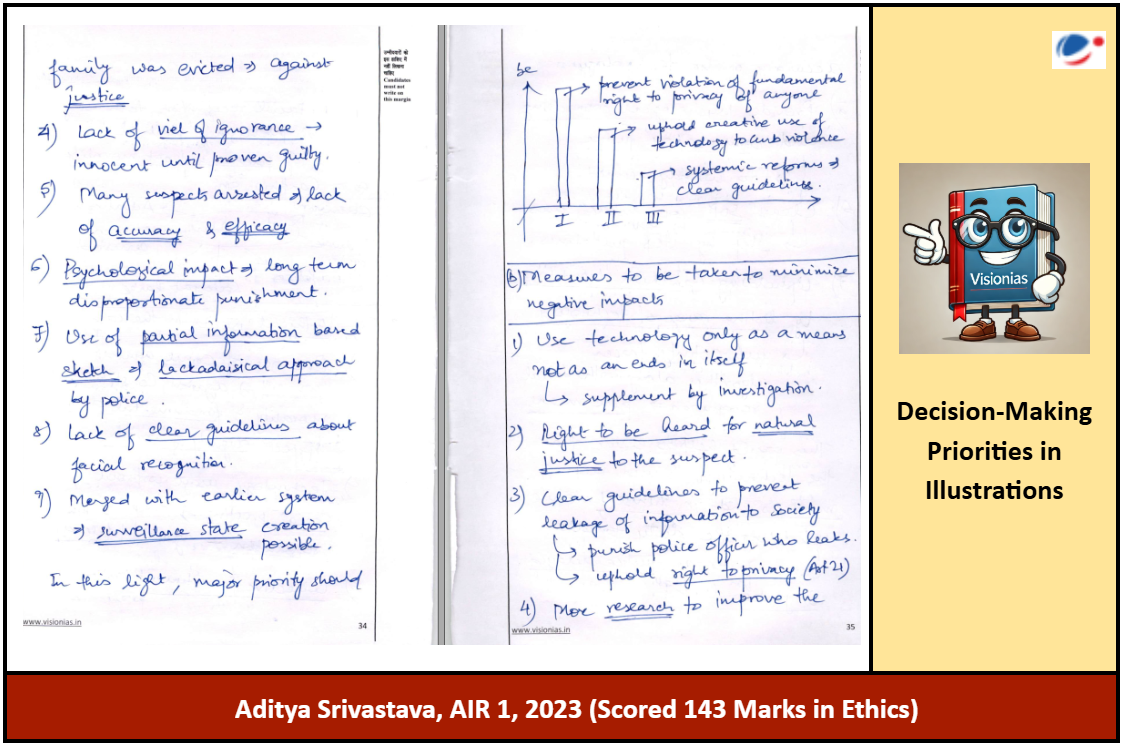 family was evicted ⇒ against
justice
4) Lack of viel of ignorance →
innocent until proven guilty.
5) Many suspects arrested ⇒ lack
of accuracy & efficacy
6) Psychological impact ⇒ long term
disproportionate punishment.
7) Use of partial information based
sketch ⇒ lackadaisical approach
by police.
8) Lack of clear guidelines about
facial recognition.
9) Merged with earlier system
⇒ surveillance state creation
possible.
In this light, major priority should
www.visionias.in
34
उम्मीदवारों को
इस हाशिए में
नहीं लिखना
चाहिए
Candidates
must not
write on
this margin
be
→ prevent violation of fundamental
right to privacy of anyone
→ uphold creative use of
technology to curb violence
→ systemic reforms ⇒
clear guidelines.
I II III
(b) Measures to be taken to minimize
negative impacts
1) Use technology only as a means
not as an ends in itself
↳ supplement by investigation.
2) Right to be heard for natural
justice to the suspect.
3) Clear guidelines to prevent
leakage of information to society
↳ punish police officer who leaks.
↳ uphold right to privacy (Art 21)
4) More research to improve the
www.visionias.in
35
Visionias
Decision-Making
Priorities in
Illustrations
Aditya Srivastava, AIR 1, 2023 (Scored 143 Marks in Ethics)